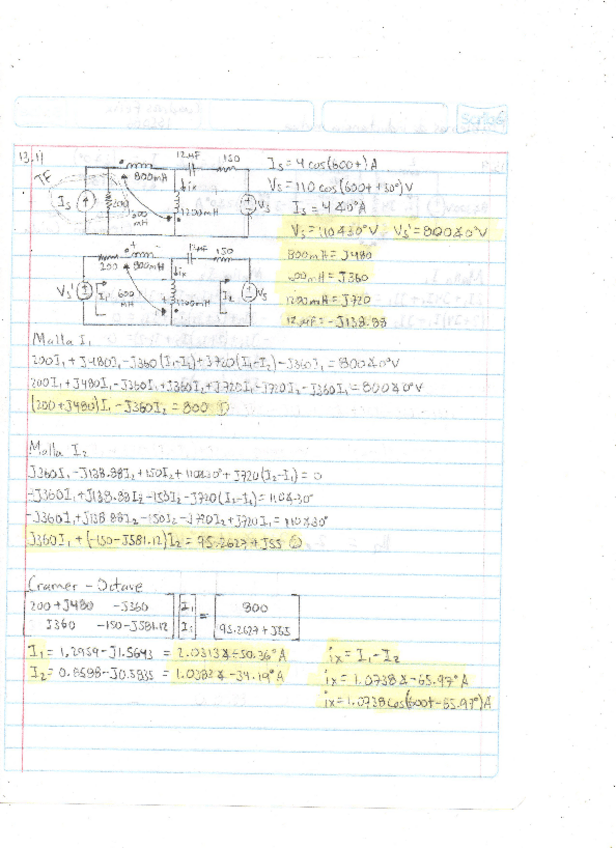 Scribe
13.11
TF
12μF 150
800mH
Is 200 600 mH ix 1200mH Vs
12μF 150
200 800mH
Vs' I1 600 mH ix 1200mH I2 Vs
Is = 4 cos(600t) A
Vs = 110 cos(600t + 30°) V
Is = 4∡0° A
Vs = 110∡30° V Vs' = 800∡0° V
800mH = J480
600mH = J360
1200mH = J720
12μF = -J138.88
Malla I1
200I1 + J480I1 - J360(I1-I2) + J720(I1-I2) - J360I1 = 800∡0°V
200I1 + J480I1 - J360I1 + J360I2 + J720I1 - J720I2 - J360I1 = 800∡0°V
(200+J480)I1 - J360I2 = 800 ①
Malla I2
J360I1 - J138.88I2 + 150I2 + 110∡30° + J720(I2-I1) = 0
-J360I1 + J138.88I2 - 150I2 - J720(I2-I1) = 110∡30°
-J360I1 + J138.88I2 - 150I2 - J720I2 + J720I1 = 110∡30°
J360I1 + (-150-J581.12)I2 = 95.2627 + J55 ②
Cramer - Octave
200+J480 -J360 I1 = 800
J360 -150-J581.12 I2 95.2627+J55
I1 = 1.2959 - J1.5643 = 2.0313∡-50.36° A
I2 = 0.8588 - J0.5835 = 1.0382∡-34.19° A
ix = I1 - I2
ix = 1.0738∡-65.97° A
ix = 1.0738 cos(600t - 65.97°) A